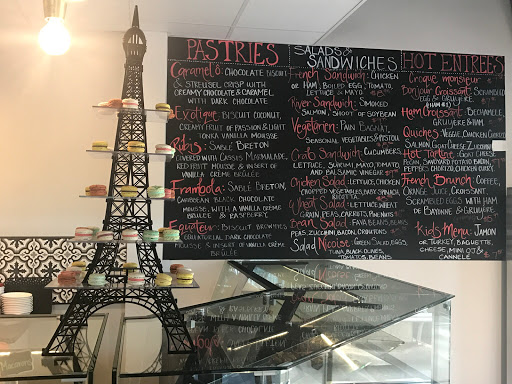 PASTRIES
Caramelo: CHOCOLATE BISCUIT
& STREUSEL CRISP WITH
CREAMY CHOCOLATE & CARAMEL
WITH DARK CHOCOLATE
Exotique: BISCUIT COCONUT,
CREAMY FRUIT OF PASSION & LIGHT
TONKA VANILLA MOUSSE
Ribis: SABLÉ BRETON
COVERED WITH CASSIS MARMALADE,
RED FRUIT MOUSSE & INSERT OF
VANILLA CRÈME BRÛLÉE
Frambola: SABLÉ BRETON,
CARIBBEAN BLACK CHOCOLATE
MOUSSE, WITH A VANILLA CRÈME
BRÛLÉE & RASPBERRY
Equateur: BISCUIT BROWNIES
EQUATORIAL DARK CHOCOLATE
MOUSSE & INSERT OF VANILLA CRÈME
BRÛLÉE
SALADS &
SANDWICHES
French Sandwich: CHICKEN
OR HAM, BOILED EGG, TOMATO,
LETTUCE & MAYO
River Sandwich: SMOKED
SALMON, SHOOT OF SOYBEAN
Vegetarien: PAIN BAGNAT,
SEASONAL VEGETABLES & PISTOU
Crab Sandwich: CUCUMBERS,
LETTUCE, SURIMI, MAYO, TOMATO
AND BALSAMIC VINEGAR
Chicken Salad: LETTUCE, CHICKEN
CHOPPED VEGETABLES, BABY SPINACH
Goat Salad: LETTUCE, WHEAT
GRAIN, PEAS, CARROTS, PINE NUTS
Bean Salad: FAVA BEANS,
PEAS, ZUCCHINI, BACON, ONIONS
Salad Nicoise: GREEN SALAD, EGGS,
TUNA, BLACK OLIVES,
TOMATOES, BEANS
HOT ENTREES
Croque monsieur
Bonjour Croissant: SCRAMBLED
EGG & GRUYERE
Ham Croissant: BECHAMEL,
GRUYERE & HAM
Quiches: VEGGIE, CHICKEN, CHORIZO
SALMON, GOAT CHEESE, ZUCCHINI
Hot Tartine: GOAT CHEESE
PECAN, SAVOYARD POTATO, BACON
PEPPERS, CHORIZO, CURRY
French Brunch: COFFEE,
ORANGE JUICE, CROISSANT,
SCRAMBLED EGGS WITH HAM
DE BAYONNE & GRUYERE
Kids Menu: JAMON
OR TURKEY, BAGUETTE,
CHEESE, MINI OJ &
CANNELÉ